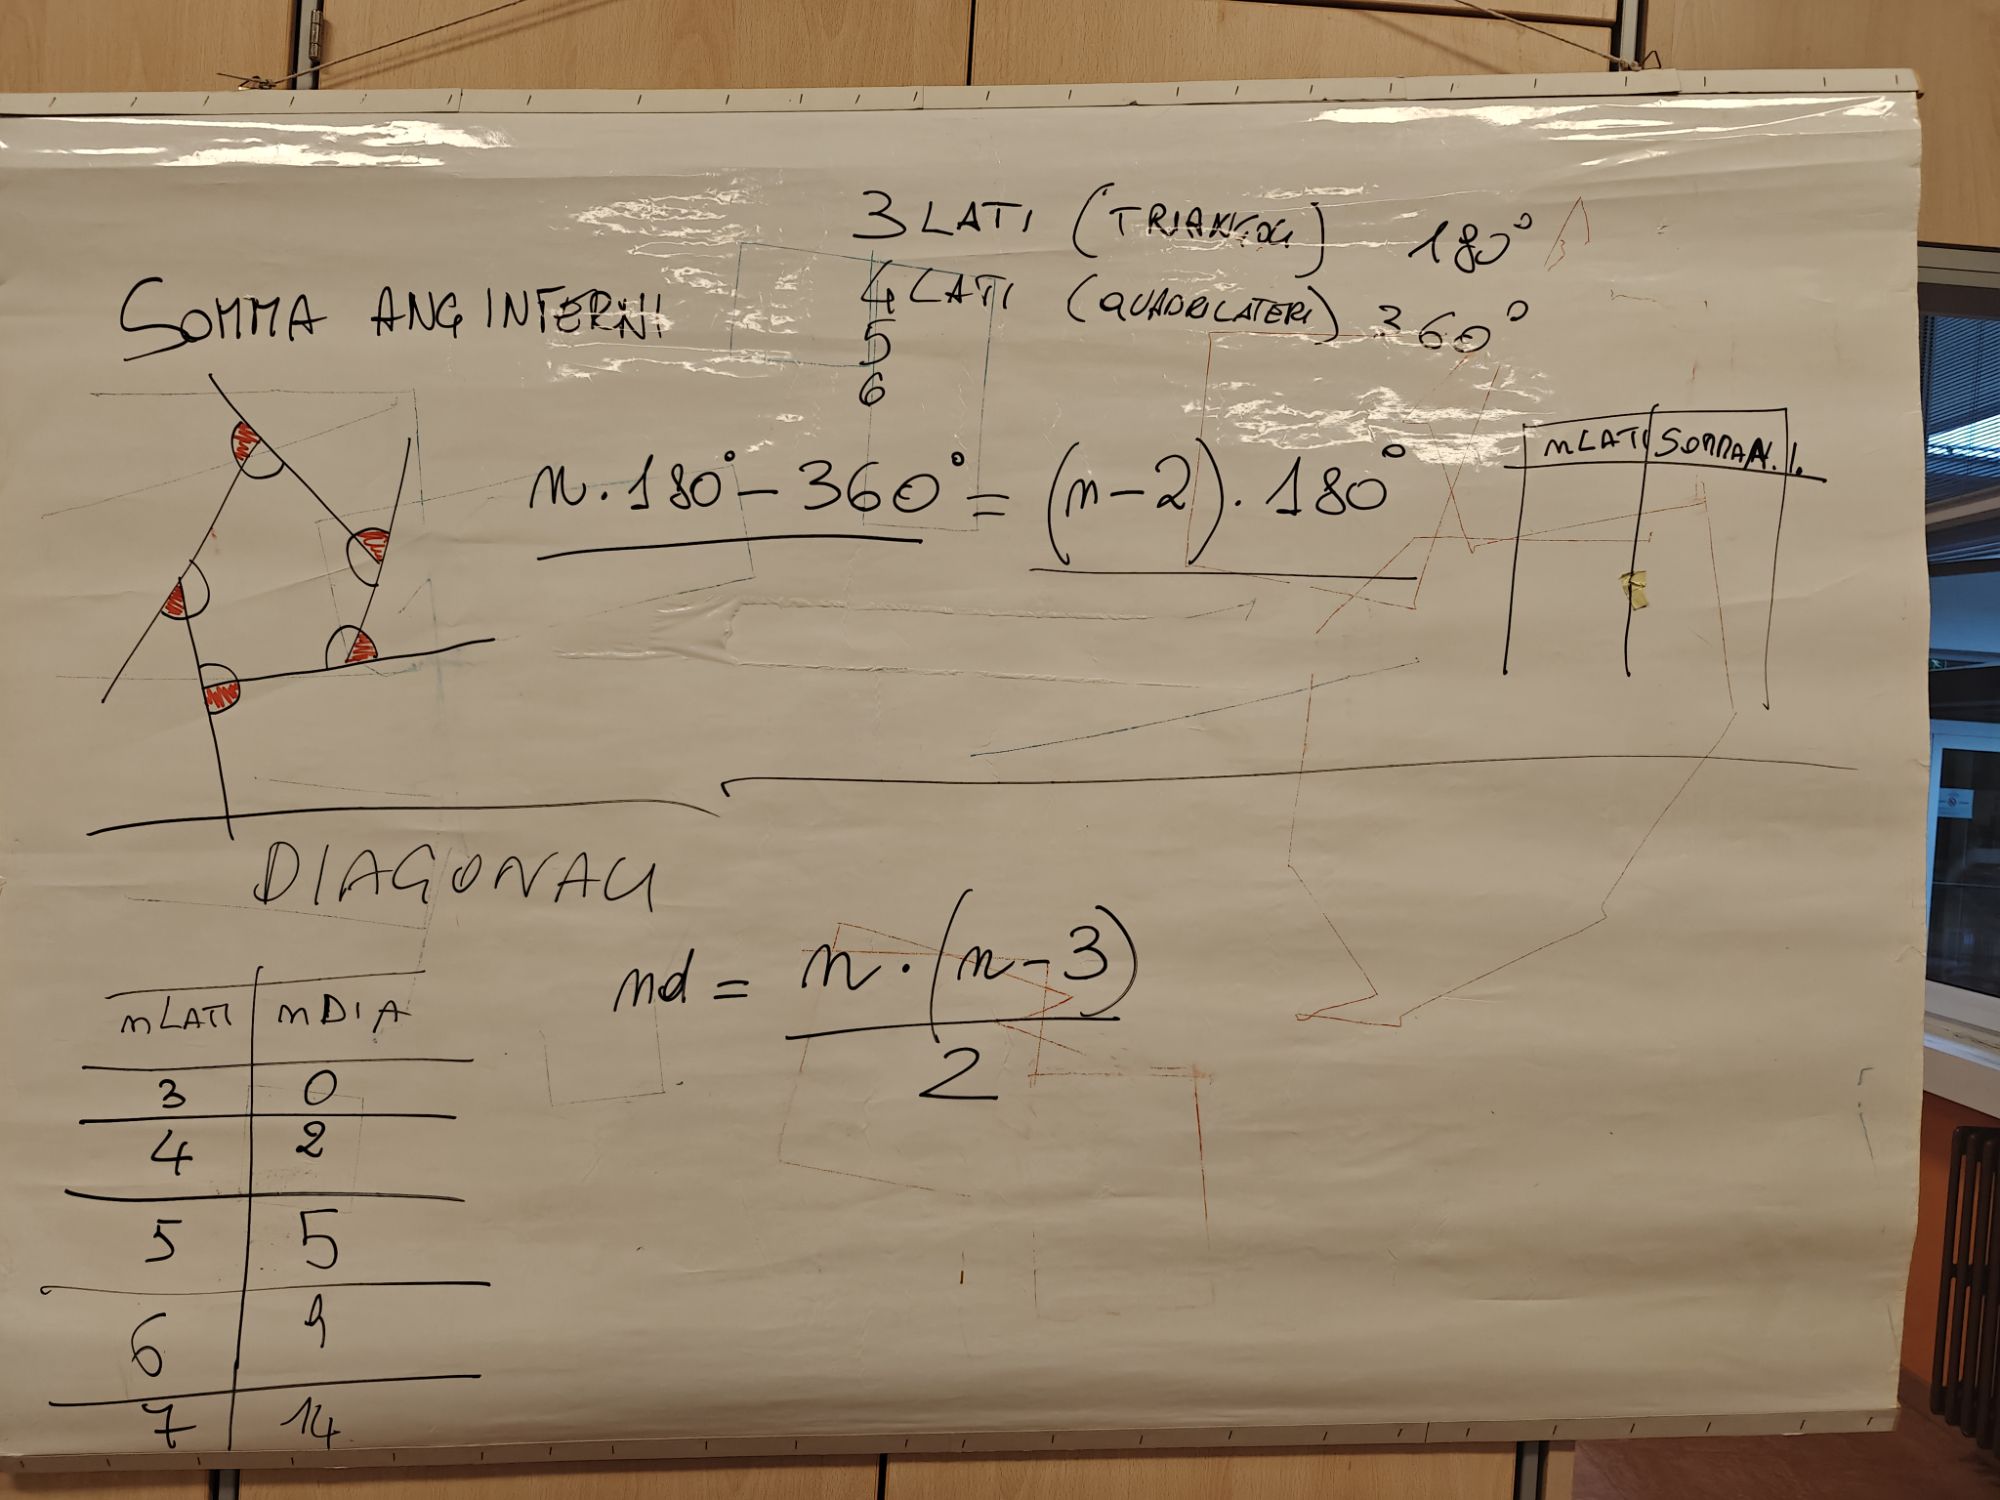 3 LATI (TRIANGOLI) 180°
4 LATI (QUADRILATERI) 360°
5
6
SOMMA ANG INTERNI
n·180° - 360° = (n-2)·180°
n LATI SOMMA A.I.
DIAGONALI
nd = n·(n-3)
2
n LATI n DIA
3 0
4 2
5 5
6 9
7 14